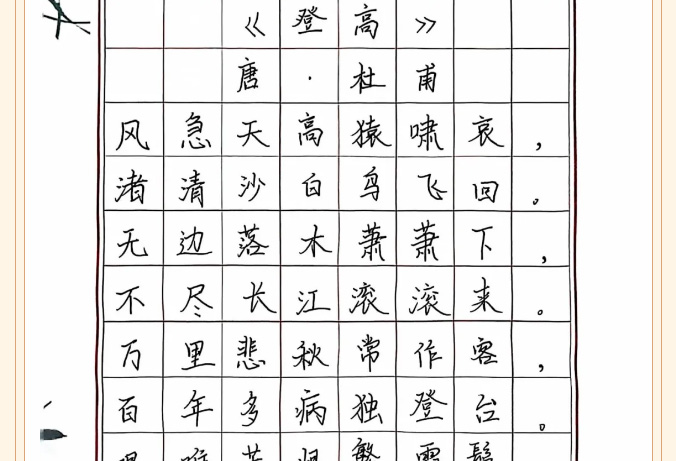 《登高》
唐·杜甫
风急天高猿啸哀，
渚清沙白鸟飞回。
无边落木萧萧下，
不尽长江滚滚来。
万里悲秋常作客，
百年多病独登台。